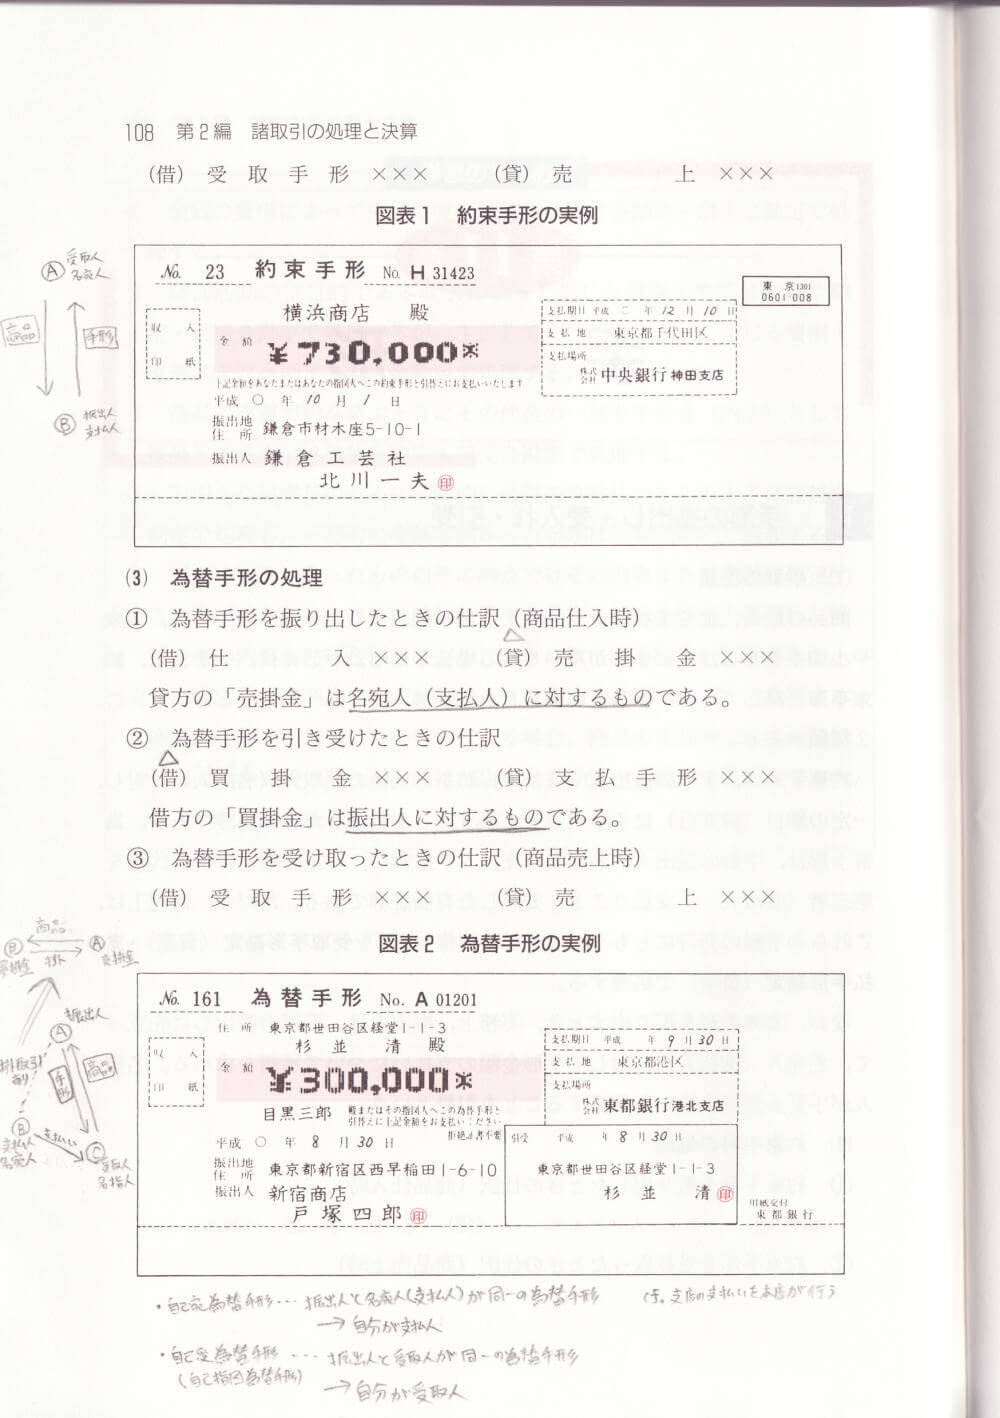 108　第2編　諸取引の処理と決算
(借)　受　取　手　形　×××　　　(貸)　売　　　　　上　×××
図表1　約束手形の実例
No. 23　約束手形　No. H 31423
東　京 1301
0601-008
横浜商店　殿
収　入
印　紙
金額　¥730,000※
上記金額をあなたまたはあなたの指図人へこの約束手形と引替えにお支払いいたします
支払期日 平成　〇　年 12 月 10 日
支　払　地　東京都千代田区
支払場所
株式会社 中央銀行 神田支店
平成　〇　年　10　月　1　日
振出地
住　所　鎌倉市材木座5-10-1
振出人　鎌倉工芸社
北川一夫 ㊞
Ⓐ 受取人
名宛人
商品
手形
Ⓑ 振出人
支払人
(3)　為替手形の処理
①　為替手形を振り出したときの仕訳（商品仕入時）
(借)　仕　　　　　入　×××　　　(貸)　売　　掛　　金　×××
貸方の「売掛金」は名宛人（支払人）に対するものである。
②　為替手形を引き受けたときの仕訳
(借)　買　　掛　　金　×××　　　(貸)　支　払　手　形　×××
借方の「買掛金」は振出人に対するものである。
③　為替手形を受け取ったときの仕訳（商品売上時）
(借)　受　取　手　形　×××　　　(貸)　売　　　　　上　×××
図表2　為替手形の実例
No. 161　為替手形　No. A 01201
住　所　東京都世田谷区経堂1-1-3
杉並　清　殿
収　入
印　紙
金額　¥300,000※
目黒三郎　殿またはその指図人へこの為替手形と
引替えに上記金額をお支払いください
拒絶証書不要
支払期日 平成　年 9 月 30 日
支　払　地　東京都港区
支払場所
株式会社 東都銀行 港北支店
平成　〇　年　8　月　30　日
振出地
住　所　東京都新宿区西早稲田1-6-10
振出人　新宿商店
戸塚四郎 ㊞
引受　平成　年 8 月 30 日
東京都世田谷区経堂1-1-3
杉並　清 ㊞
用紙交付
東都銀行
商品
Ⓑ　Ⓐ
掛　売掛金
振出人
Ⓐ
掛取引
あり
手形
商品
Ⓑ
支払人
名宛人
支払い
Ⓒ 受取人
名指人
・自己宛為替手形… 振出人と名宛人(支払人)が同一の為替手形
支店の支払いを本店が行う
→ 自分が支払人
・自己受為替手形 … 振出人と受取人が同一の為替手形
(自己指図為替手形)
→ 自分が受取人